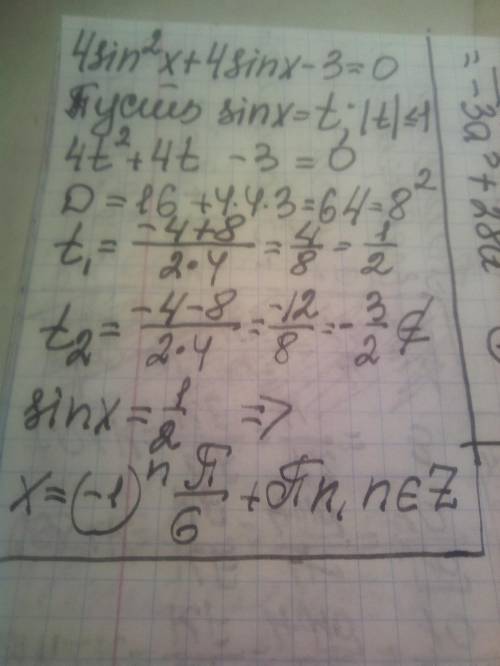 4sin²x+4sinx-3=0
Пусть sinx=t; |t|≤1
4t²+4t -3=0
D=16+4·4·3=64=8²
t₁=(-4+8)/(2·4)=4/8=1/2
t₂=(-4-8)/(2·4)=-12/8=-3/2 ∉
sinx=1/2 =>
x=(-1)ⁿ П/6+Пn, n∈Z